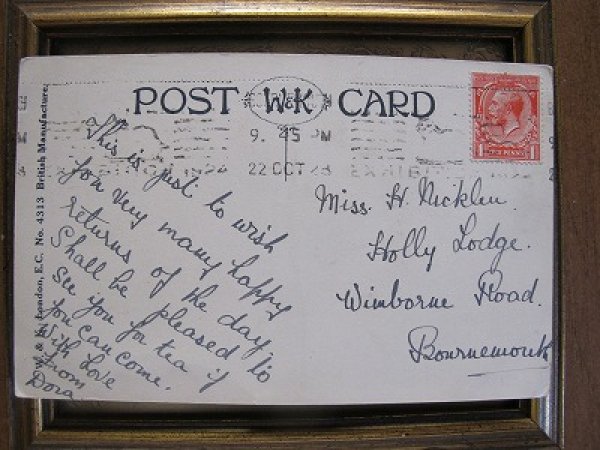 POST W&K CARD
9.45 PM
22 OCT 23
This is just to wish
you very many happy
returns of the day,
Shall be pleased to
see you for tea if
you can come.
With Love
from
Dora
Miss. H.
Holly Lodge.
Wimborne Road.
Bournemouth
W. & K. London, E.C. No. 4313 British Manufacture.